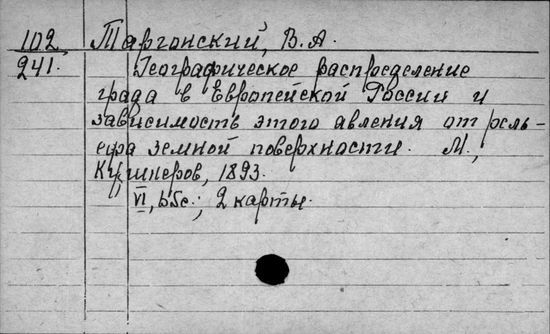 102 Таргонский, В.А.
241. Географическое распределение
града в Европейской России и
зависимость этого авления от рель-
ефа земной поверхности. М.,
Кушнеров, 1893.
VI, 65с.; 2 карты.